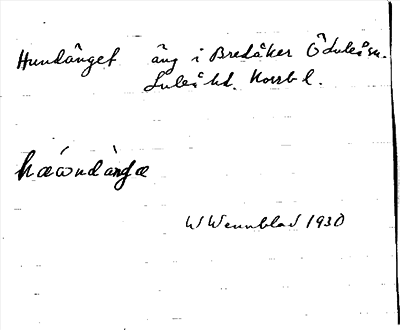 Hundänget äng i Bredåker Ö Luleå sn.
Luleå hd. Norrb l.
hǽωndàŋgæ
W Wennblad 1930